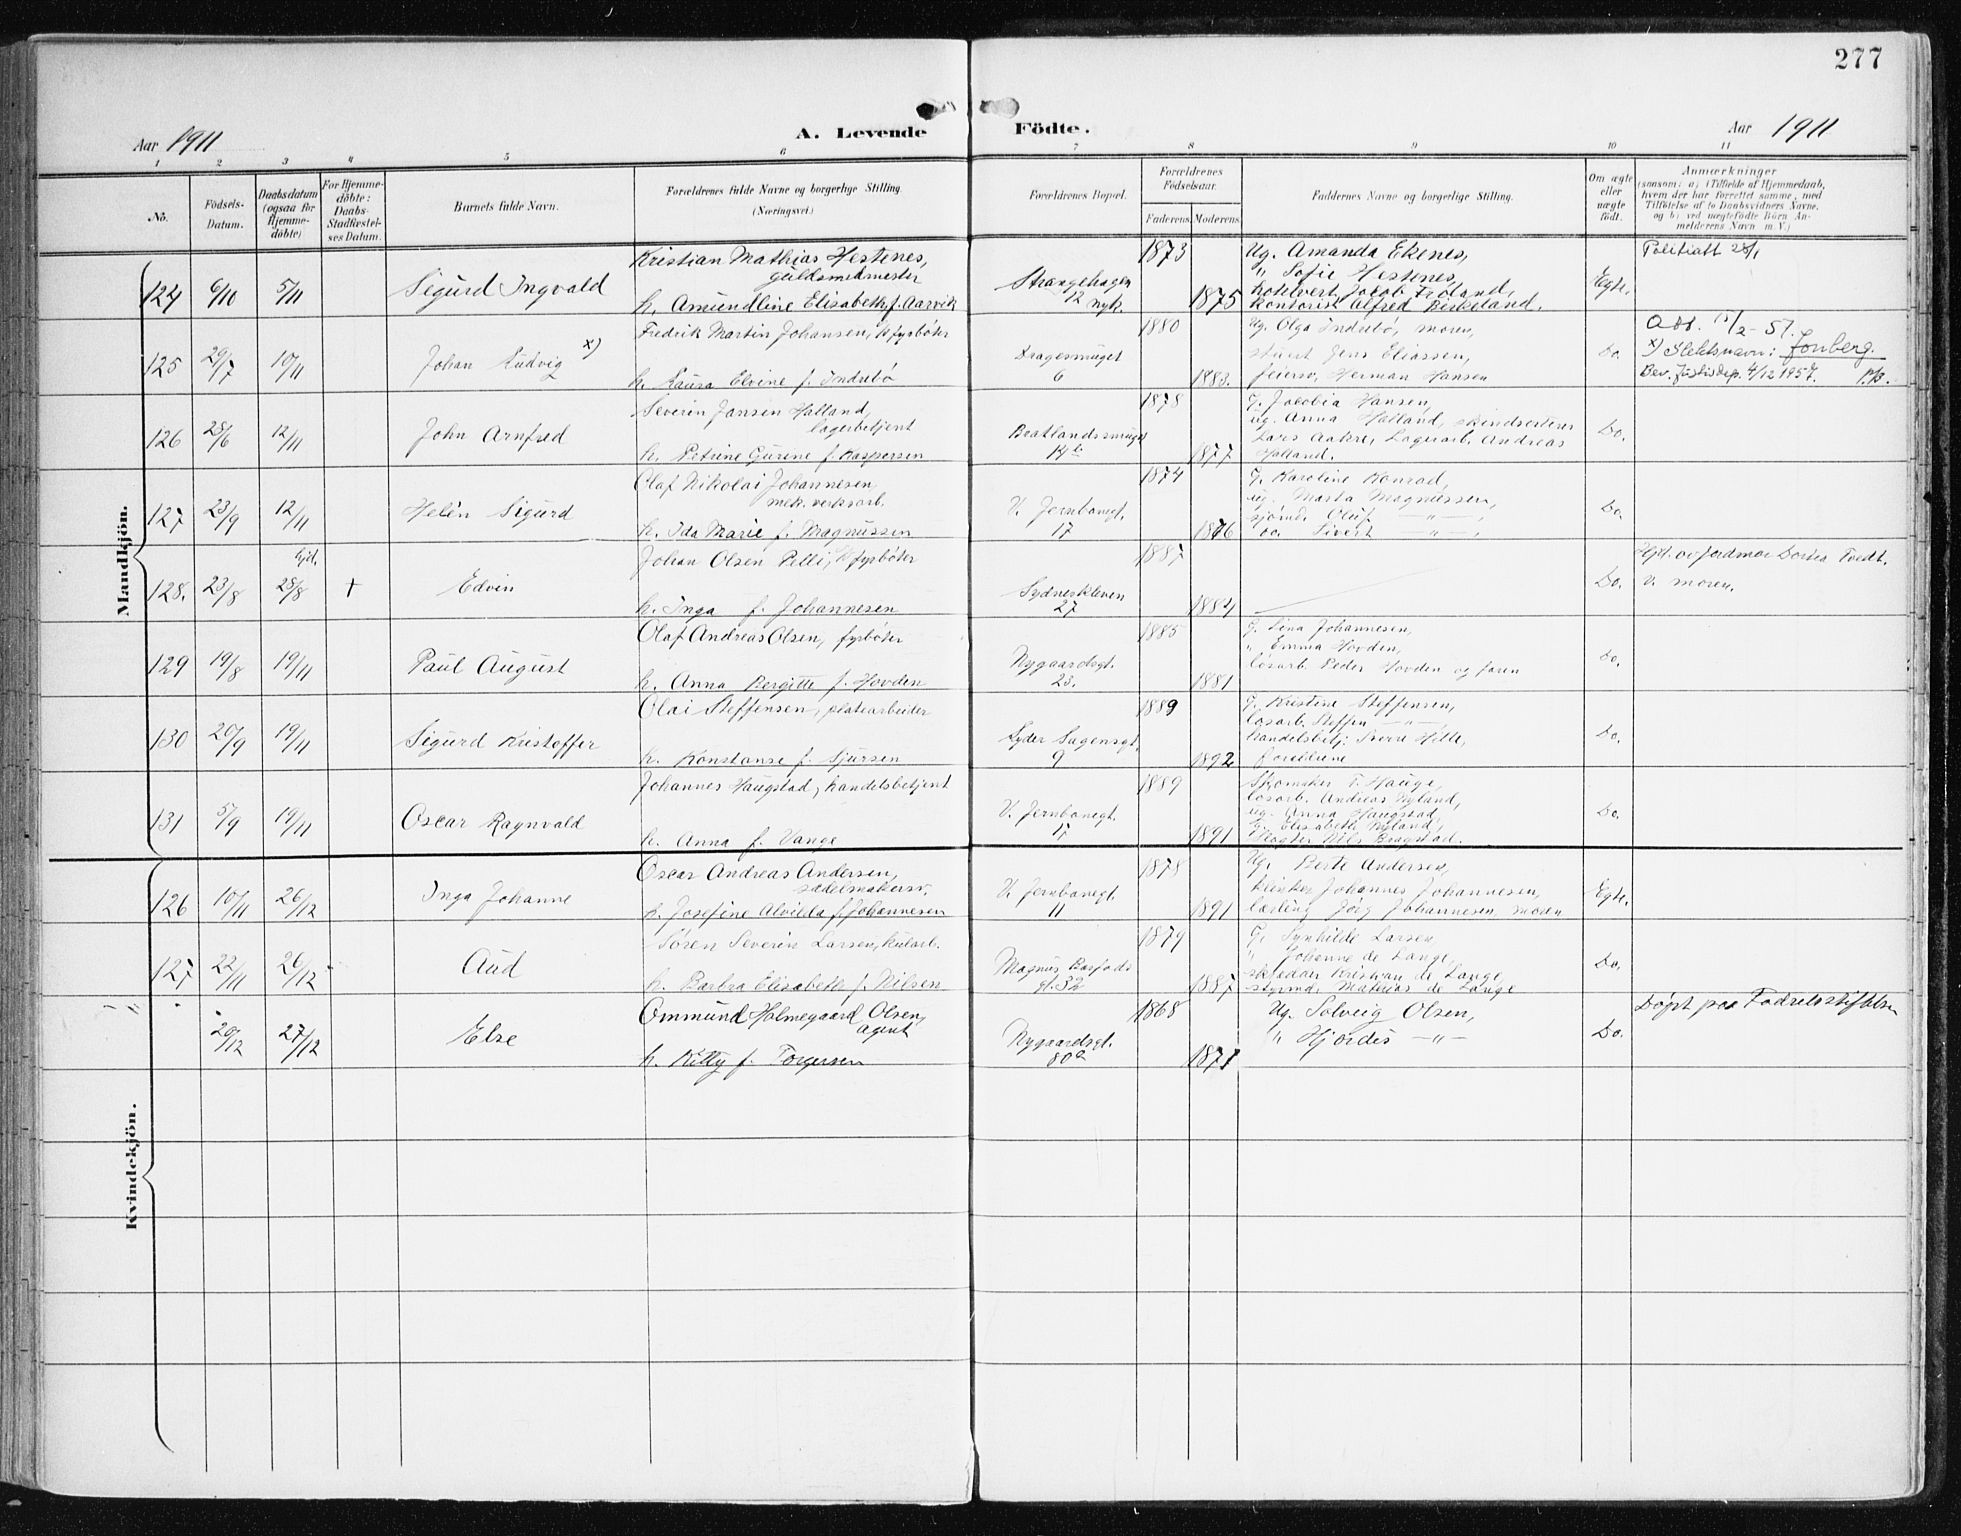 277
Aar 1911
A. Levende Födte.
Aar 1911
1 2 3 4 5 6 7 8 9 10 11
No.
Födsels-Datum.
Daabsdatum (ogsaa for Hjemme-döbte)
For Hjemme-döbte: Daabs-Stadfæstel-ses Datum.
Barnets fulde Navn.
Forældrenes fulde Navne og borgerlige Stilling.
(Næringsvei.)
Forældrenes Bopæl.
Forældrenes Födselsaar.
Faderens. Moderens.
Faddernes Navne og borgerlige Stilling.
Om ægte eller uægte født.
Anmærkninger
(saasom: a) i Tilfælde af Hjemmedaab,
hvem der har forrettet samme, med
Tilföielse af to Daabsvidners Navne,
og b) ved uægtefödte Börn An-
melderens Navn m.V.)
Mandkjön.
124 6/10 5/11 Sigurd Ingvald
Kristian Mathias Hestenes,
guldsmedmester
h. Amundline Elisabeth f. Aarvik
Strangehagen
12 Nyk.
1873 1875
Ug. Amanda Ekenes,
" Sofie Hestenes,
hotelvert Jacob Frøland,
kontorist Alfred Birkeland.
Egte.
Politiatt 23/1
125 29/7 10/11 Johan Ludvig x)
Fredrik Martin Johansen, kfyrbøter
h. Laura Elvine f. Indrebø
Dragesmuget
6
1880 1883.
Ug. Olga Indrebø, moren,
stuert Jens Eliassen,
feiersv. Herman Hansen
Do.
Att. 15/2-57.
x) Slektsnavn: Jonberg.
Bev. Justisdep. 4/12 1957.
126 28/6 12/11 John Arnfred
Severin Jansen Halland,
lagerbetjent
h. Petrine Gurine f. Kaspersen
Bratlandssmuget
14b
1878 1877
G. Jacobia Hansen,
ug. Anna Halland, skindsorterer
Lars Aakre, Lagerarb. Andreas
Halland.
Do.
127 23/9 12/11 Helén Sigurd
Olaf Nikolai Johannesen
mek. verksarb.
h. Ida Marie f. Magnussen
V. Jernbanegt.
17
1874 1876
G. Karoline Konrad,
ug. Marta Magnussen,
sjømd. Oluf —"—,
do. Sivert —"—,
Do.
128. 23/8 hjd. 25/8 + Edvin
Johan Olsen Pelli, kfyrbøter
h. Inga f. Johannesen
Sydneskleven
27
1887 1884
Do.
Hjd. av jordmor Dortea Tvedt.
v. moren.
129 19/8 19/11 Paul August
Olaf Andreas Olsen, fyrbøter
h. Anna Bergitte f. Hovden
Nygaardsgt.
23.
1885 1881
G. Lina Johannesen,
" Emma Hovden,
løsarb. Peder Hovden og faren
Do.
130 20/9 19/11 Sigurd Kristoffer
Olai Steffensen, platearbeider
h. Konstanse f. Sjursen
Lyder Sagensgt.
9
1889 1892
G. Kristine Steffensen,
løsarb. Steffen —"—,
handelsbetj. Sverre Hille,
foreldrene
Do.
131 5/9 19/11 Oscar Ragnvald
Johannes Haugstad, handelsbetjent
h. Anna f. Vange
V. Jernbanegt.
17
1889 1891
Skomaker T. Hauge,
løsarb. Andreas Nyland,
ug. Anna Haugstad,
G. Elisabeth Nyland,
Slagter Nils Bragstad.
Do.
Kvindekjön.
126 10/11 26/12 Inga Johanne
Oscar Andreas Andersen,
sadelmakersv.
h. Josefine Alvilda f. Johannesen
V. Jernbanegt.
11
1878 1891
Ug. Berte Andersen,
klinker Johannes Johannesen,
lærling Jørg. Johannesen, moren
Egte.
127 22/11 26/12 Aud
Søren Severin Larsen, kularb.
h. Barbra Elisabeth f. Nilsen
Magnus Barfods
gt. 32
1879 1887
G. Synhilde Larsen,
" Johanne de Lange,
skredder Kristian de Lange,
styrmd. Mathias de Lange
Do.
20/12 27/12 Else
Ommund Holmegaard Olsen,
agent
h. Kitty f. Torgersen
Nygaardsgt.
80a
1868 1871
Ug. Solveig Olsen,
" Hjørdis —"—
Do.
Døpt paa Fødselsstiftelsen